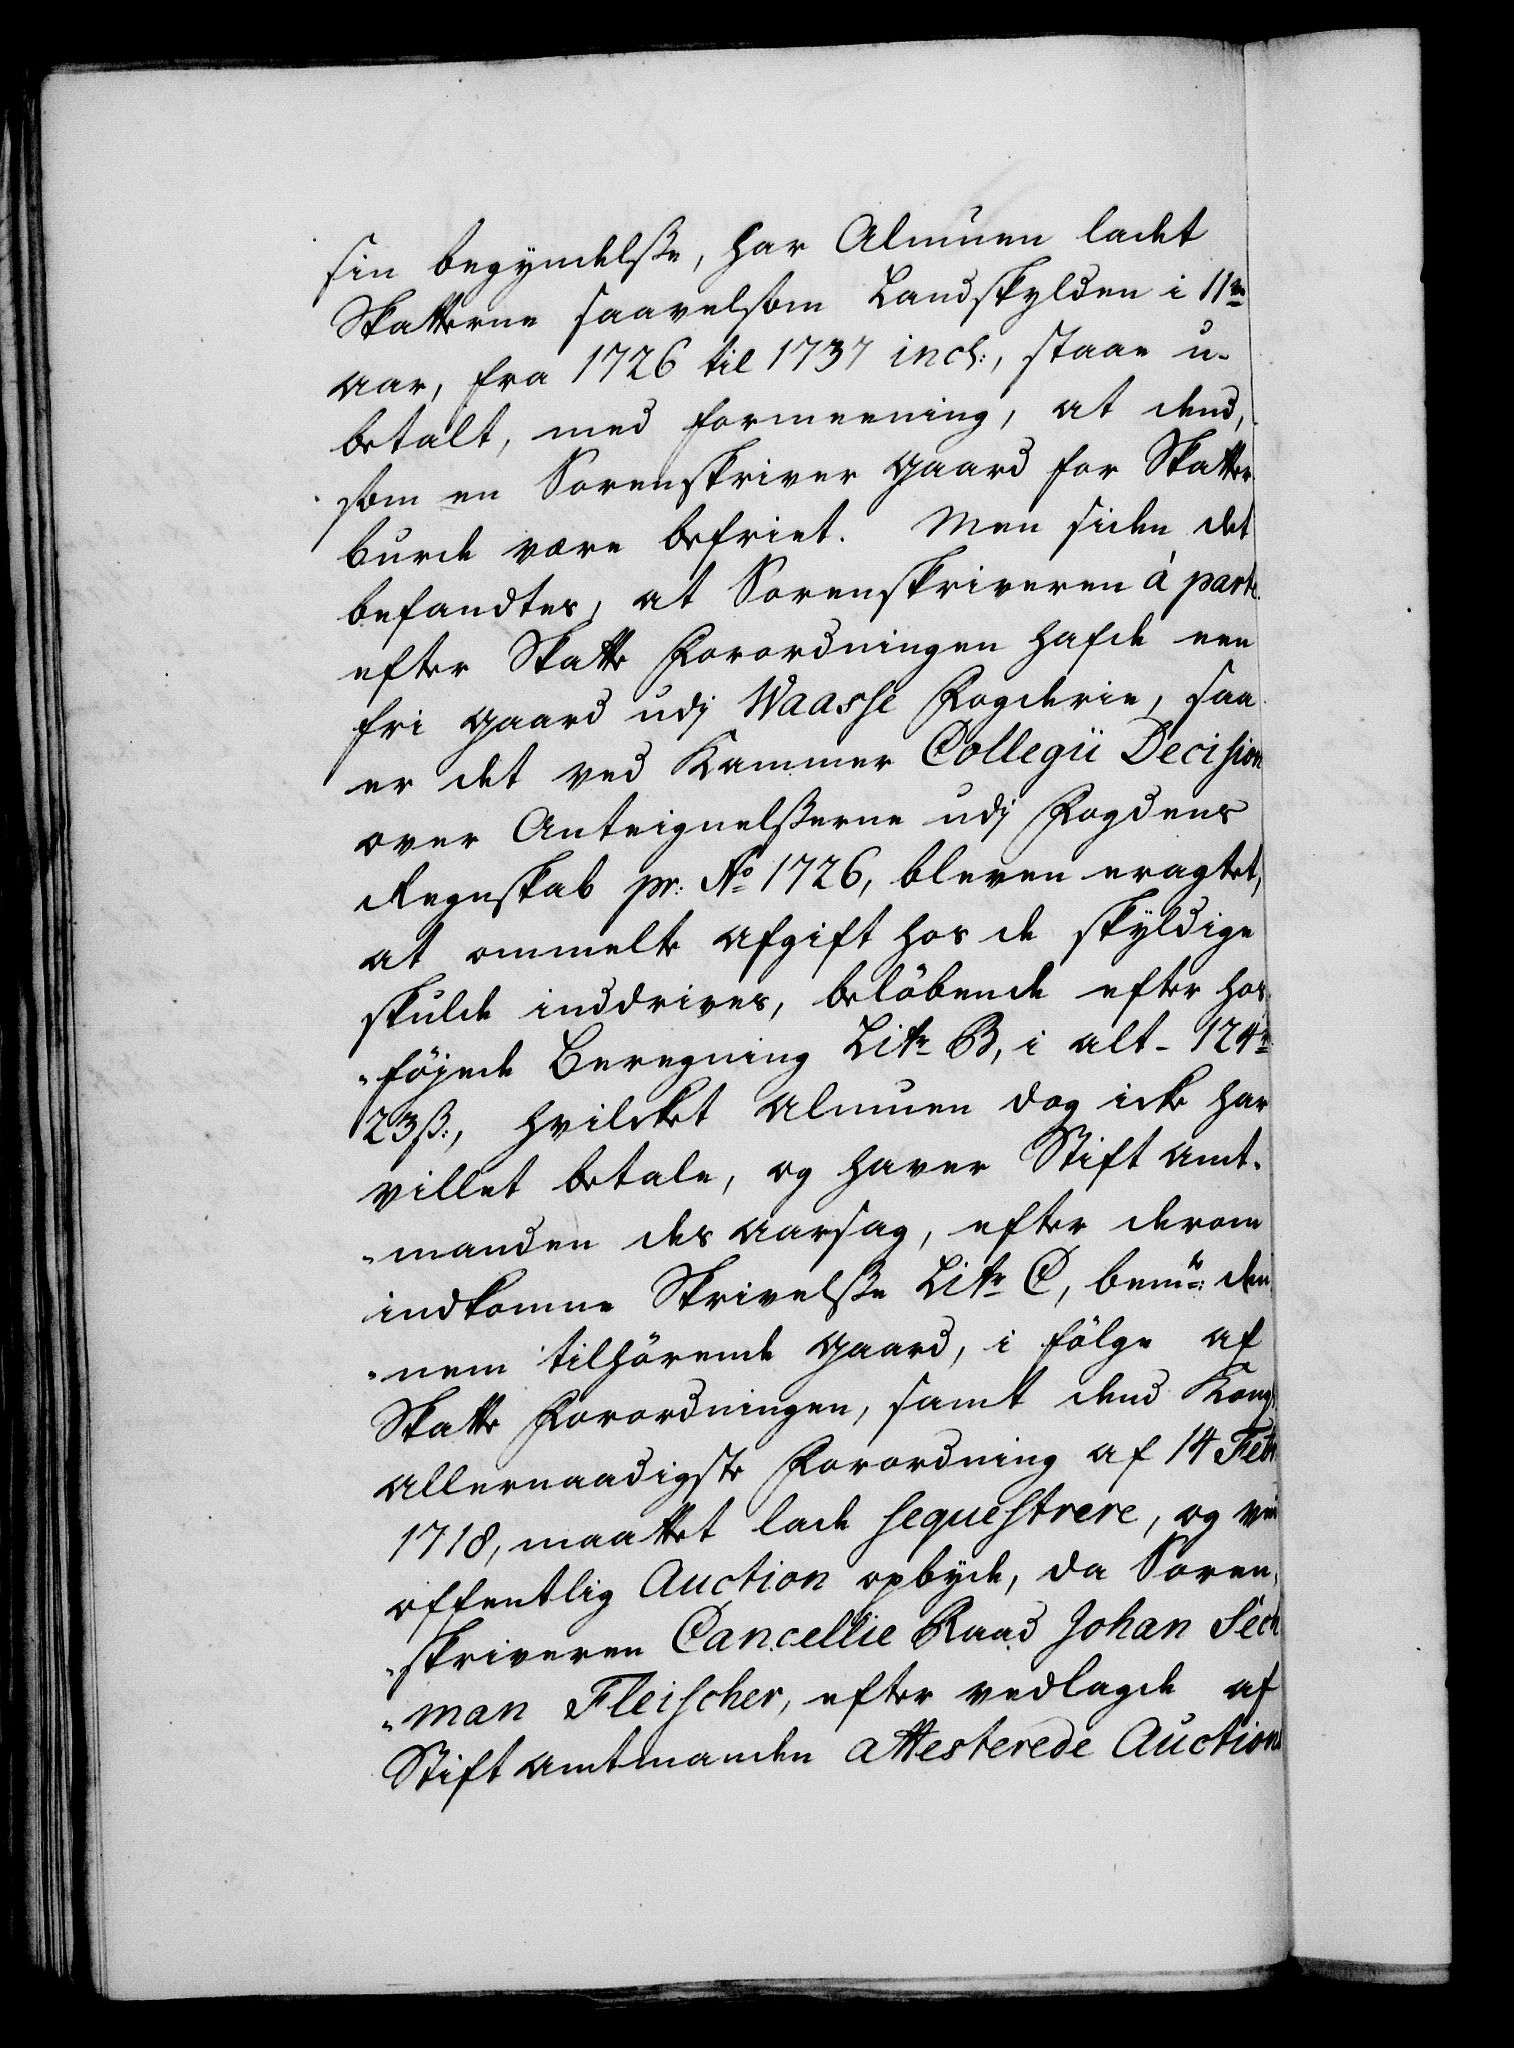 sin begyndelsse, har Almuen ladet
Skatterne saavelsom Landskylden i 11ve
aar, fra 1726 til 1737 incl:, staae u-
betalt, med formeening, at dend,
som en Sorenskriver gaard for Skatter
burde være befriet. Men siden det
befandtes, at Sorenskriveren à parte
efter Skatte Forordningen hafde een
fri gaard udj Waasse Fogderie, saa
er det ved Kammer Collegii Decision
over Anteignelsserne udj Fogdens
Regnskab pr: Ao 1726, bleven eragtet,
at ommelte afgift hos de skyldige
skulde inddrives, belöbende efter hos
"föjede Beregning Litr B, i alt - 124r
23 ß:, hvilcket Almuen dog icke har
villet betale, og haver Stift Amt-
"manden des aarsag, efter derom
indkomne Skrivelsse Litr C, bemte: den
"nem tilhörende gaard, i fölge af
Skatte Forordningen, samt dend Kong:
allernaadigste Forordning af 14 Febr:
1718, maattet lade sequestrere, og ved
offentlig Auction opbyde, da Soren
"skriveren Cancellie Raad Johan Sech
"man Fleischer, efter vedlagde af
Stift amtmanden attesterede Auctions